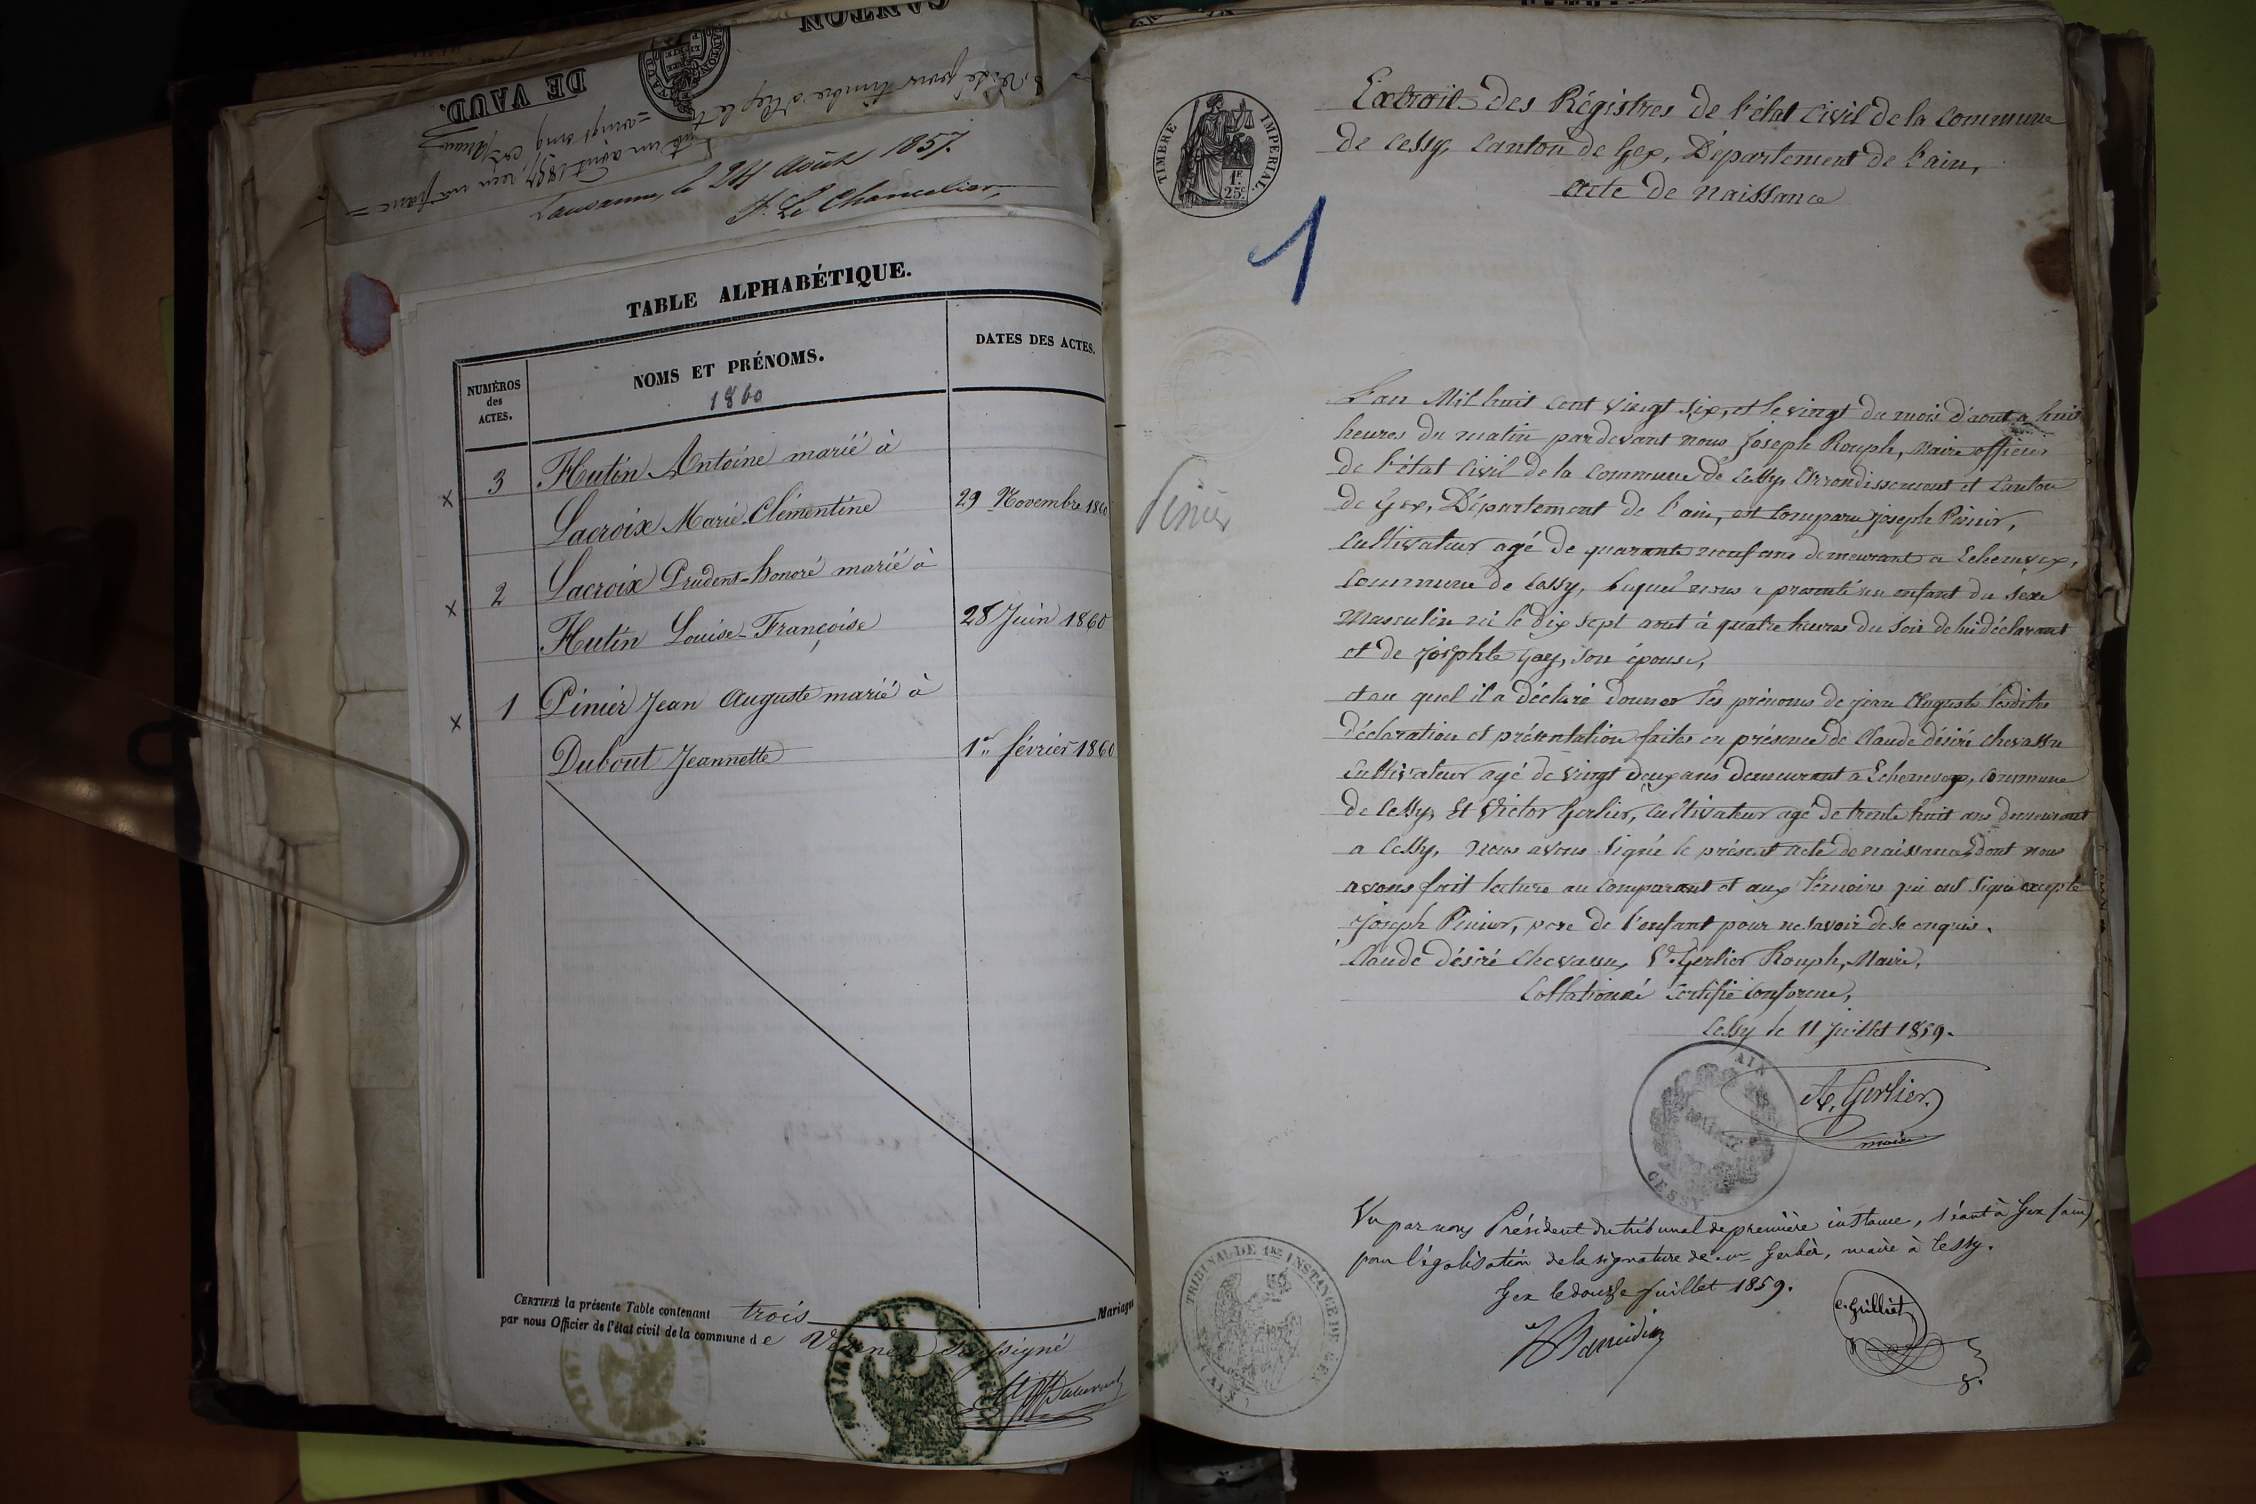 CANTON
DE VAUD.
Lausanne, le 24 Août 1857.
Le Chancelier,
TABLE ALPHABÉTIQUE.
NUMÉROS des ACTES.
NOMS ET PRÉNOMS.
DATES DES ACTES.
1860
3 Hutin Antoine marié à
Lacroix Marie-Clémentine 29 Novembre 1860
2 Lacroix Prudent-honoré marié à
Hutin Louise-Françoise 28 Juin 1860
1 Pinier Jean Auguste marié à
Dubout Jeannette 1er février 1860
CERTIFIÉ la présente Table contenant trois Mariages
par nous Officier de l'état civil de la commune de soussigné
TIMBRE IMPERIAL.
1F. 25c.
Extrait des Régistres de l'état Civil de la Commune
de Cessy, Canton de Gex, Département de l'ain,
acte de Naissance
1
Pinier
L'an Mil huit cent vingt six, et le vingt du mois d'aout a huit
heures du matin pardevant nous Joseph Rouph, Maire officier
de l'état Civil de la Commune de Cessy, Arrondissement et Canton
de Gex, Département de l'ain, est Comparu Joseph Pinier,
Cultivateur agé de quarante neuf ans demeurant a Echenevex,
Commune de Cessy, lequel nous a presenté un enfant du sexe
Masculin né le dix sept aout à quatre heures du soir de lui déclarant
et de Josephte Gay, son épouse,
et au quel il a déclaré donner les prénoms de jean Auguste lesdites
déclaration et présentation faites en présence de Claude désiré Chevassu
Cultivateur agé de vingt deux ans demeurant a Echenevex, Commune
de Cessy, et Victor Gerlier, Cultivateur agé de trente huit ans demeurant
a Cessy, Nous avons Signé le présent acte de naissance, dont nous
avons fait lecture au Comparant et aux témoins qui ont Signé excepté
Joseph Pinier, pere de l'enfant pour ne savoir de ce enquis.
Claude désiré Chevassu, Vr. Gerlier Rouph, Maire,
Collationné Certifié Conforme,
Cessy le 11 Juillet 1859.
A. Gerlier
maire
CESSY
Vu par nous Président du tribunal de première instance, séant à Gex (ain)
pour légalisation de la signature de mr Gerlier, maire à Cessy.
Gex le douze juillet 1859.
TRIBUNAL DE 1RE INSTANCE DE GEX
(AIN)
e. Grilliet